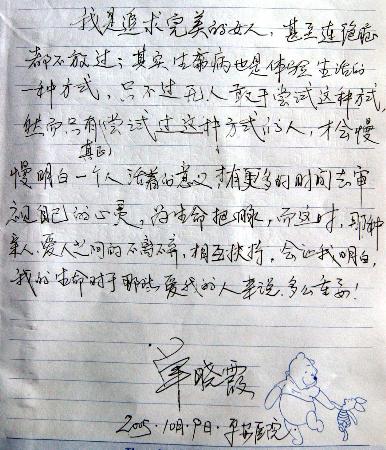 我是追求完美的女人，甚至连绝症
都不放过；其实生病也是体验生活的
一种方式，只不过无人敢于尝试这种方式，
然而只有尝试过这种方式的人，才会慢
真正
慢明白一个人活着的意义，才有更多的时间去审
视自己的心灵，为生命把脉，而这时，那种
亲人、爱人之间的不离不弃，相互扶持，会让我明白，
我的生命对于那些爱我的人来说多么重要！
晓霞
2005·10月·9日·平安医院